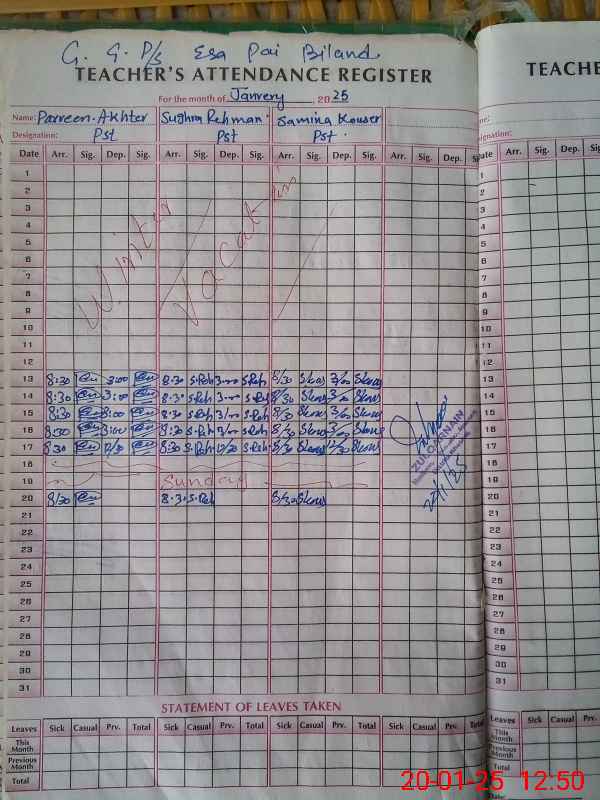 G. G. P/S Esa Pai Biland
TEACHER'S ATTENDANCE REGISTER
TEACHE
For the month of Janvery, 2025
Name: Parveen. Akhter Sughra Rehman. Samina Kouser
Designation: Pst Pst Pst.
Date Arr. Sig. Dep. Sig. Arr. Sig. Dep. Sig. Arr. Sig. Dep. Sig. Arr. Sig. Dep. Sig. Date Arr. Sig. Dep.
1 1
2 2
3 3
4 4
5 5
6 6
7 7
8 8
9 9
10 10
11 11
12 12
Winter Vacation
13 8:30 3:00 8.30 S.Reh 3.00 S.Reh 8/30 Skous 3/00 Skous 13
14 8:30 3:00 8.30 S.Reh 3.00 S.Reh 8/30 Skous 3/00 Skous 14
15 8:30 3:00 8.30 S.Reh 3/00 S.Reh 8/30 Skous 3/00 Skous 15
16 8:30 3:00 8.30 S.Reh 3/00 S.Reh 8/30 Skous 3/00 Skous 16
17 8:30 12/30 8.30 S.Reh 12/30 S.Reh 8/30 Skous 12/30 Skous 17
ZULQARNAIN
18 18
19 Sunday 19
20 8/30 8.30 S.Reh 8/30 Skous 20
21 21
22 22
23 23
24 24
25 25
26 26
27 27
28 28
29 29
30 30
31 31
STATEMENT OF LEAVES TAKEN
Leaves Sick Casual Prv. Total Sick Casual Prv. Total Sick Casual Prv. Total Sick Casual Prv. Total Leaves Sick Casual Prv.
This Month This Month
Previous Month Previous Month
Total Total
20-01-25 12:50